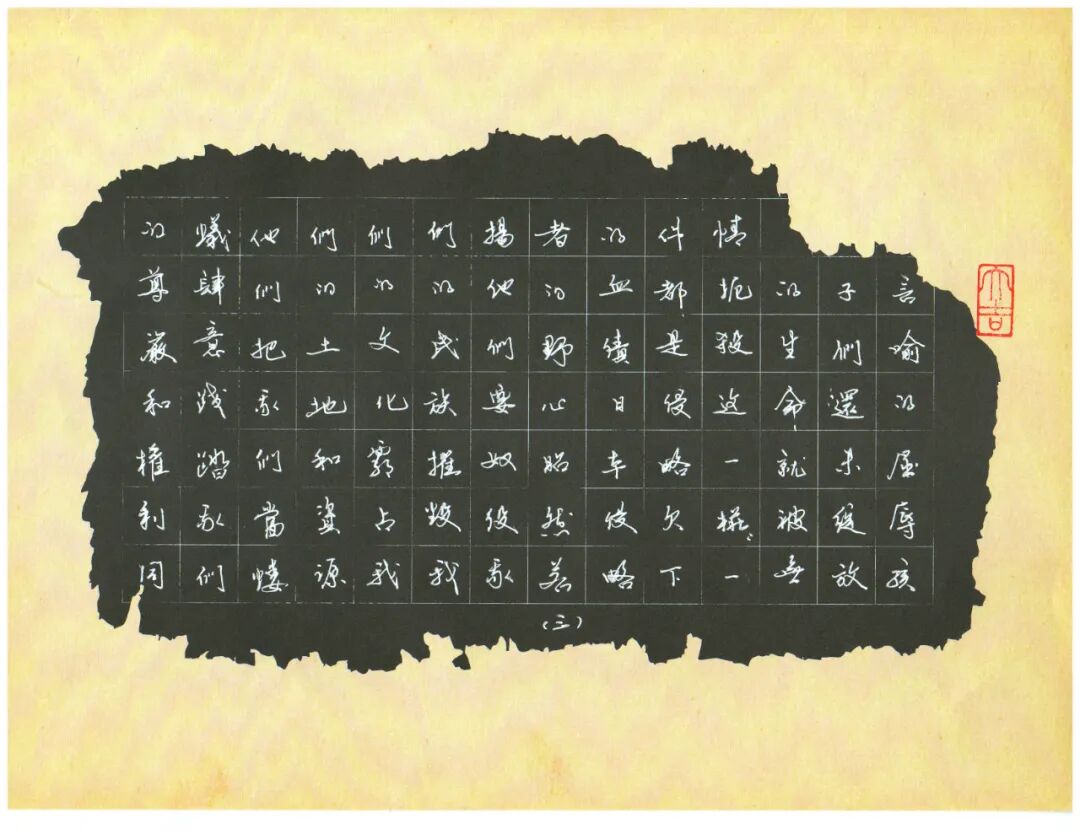 言喻的屈辱孩
子們還未綻放
的生命就被無
情扼殺这一樁〻一
件都是侵略欠下
的血債日本侵略
者的野心昭然若
揚他們要奴役我
們的民族摧毀我
們的文化霸占我
們的土地和資源
他們把我們當螻
蟻肆意踐踏我們
的尊嚴和權利同
(三)
大吉